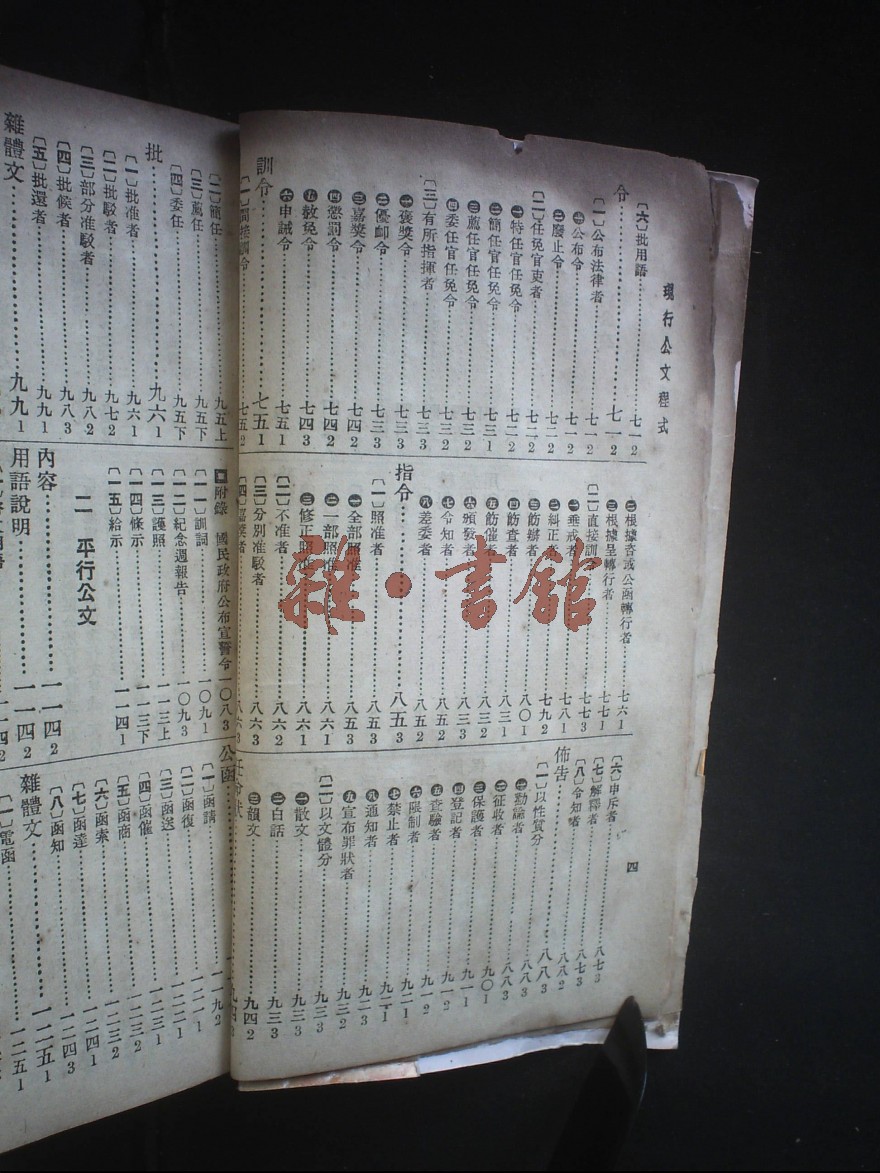 現行公文程式
四
〔六〕批用語…………七一2
令…………七一2
〔一〕公布法律者…………七一2
㊀公布令…………七一2
㊁廢止令…………七二2
〔二〕任免官吏者…………七二2
㊀特任官任免令…………七二2
㊁簡任官任免令…………七三1
㊂薦任官任免令…………七三2
㊃委任官任免令…………七三2
〔三〕有所指揮者…………七三2
㊀褒獎令…………七三3
㊁優卹令…………七三3
㊂嘉獎令…………七四2
㊃懲罰令…………七四2
㊄赦免令…………七四3
㊅申誡令…………七五1
訓令…………七五1
㊁根據咨或公函轉行者…………七六1
㊂根據呈轉行者…………七七1
〔二〕直接訓…………七七3
㊀垂戒者…………七八1
㊁糾正者…………七九2
㊂飭辦者…………八〇1
㊃飭查者…………八三1
㊄飭催者…………八三2
㊅頒發者…………八三3
㊆令知者…………八四2
㊇差委者…………八五2
指令…………八五3
〔一〕照准者…………八五3
㊀全部照准…………八五3
㊁一部照准…………八六1
㊂修正照准…………八六1
〔二〕不准者…………八六2
〔三〕分別准駁者…………八六3
〔四〕嘉獎者…………八六3
〔六〕申斥者…………八七3
〔七〕解釋者…………八七3
〔八〕令知者…………八八2
佈告…………八八3
〔一〕以性質分…………八八3
㊀勸諭者…………八八3
㊁征收者…………九〇1
㊂保護者…………九一1
㊃登記者…………九一2
㊄查驗者…………九一2
㊅限制者…………九二1
㊆禁止者…………九二1
㊇通知者…………九二3
㊈宣布罪狀者…………九三2
〔二〕以文體分…………九三3
㊀散文…………九三3
㊁白話…………九三3
㊂韻文…………九四2
〔二〕簡任…………九五上
〔三〕薦任…………九五下
〔四〕委任…………九五下
批…………九六1
〔一〕批准者…………九六1
〔二〕批駁者…………九七2
〔三〕部分准駁者…………九八2
〔四〕批候者…………九八3
〔五〕批還者…………九九1
雜體文…………九九1
附錄 國民政府公布宣誓令…………一〇八3
〔一一〕訓詞…………一〇九1
〔一二〕紀念週報告…………一〇九3
〔一三〕護照…………一一三上
〔一四〕條示…………一一三下
〔一五〕給示…………一一四1
二 平行公文
內容…………一一四2
用語說明…………一一四2
公函…………一一九2
〔一〕函請…………一二一1
〔二〕函復…………一二二1
〔三〕函送…………一二三1
〔四〕函催…………一二三2
〔五〕函商…………一二三2
〔六〕函索…………一二四1
〔七〕函達…………一二四3
〔八〕函知…………一二五1
雜體文…………一二五1
〔一〕電函
雜·書館